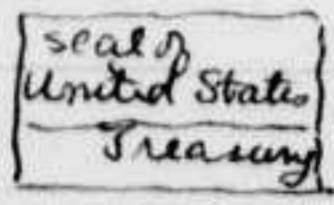 seal of
United States
Treasury